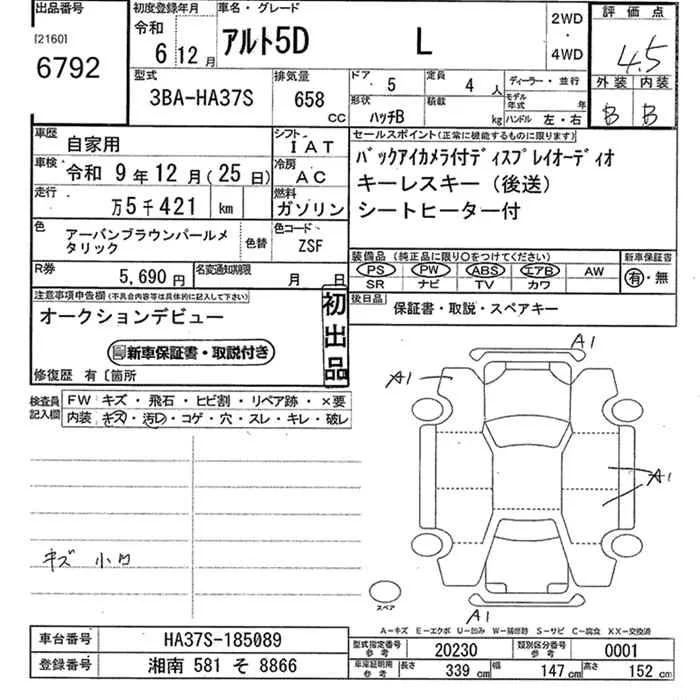 出品番号
[2160]
6792
初度登録年月
令和
6 12月
車名・グレード
アルト5D L
2WD
・
4WD
評価点
4.5
外装 内装
B B
型式
3BA-HA37S
排気量
658
cc
ドア
5
定員
4人
形状
ハッチB
積載
kg
ディーラー・並行
モデル年式 年
ハンドル 左・右
車歴
自家用
シフト
IAT
車検
令和 9年12月(25日)
冷房
AC
走行
万5千421 km
燃料
ガソリン
色
アーバンブラウンパールメ
タリック
色替
色コード
ZSF
R券
5,690円
名変通知期限
月 日
セールスポイント(正常に機能するものに限ります)
バックアイカメラ付ディスプレイオーディオ
キーレスキー(後送)
シートヒーター付
装備品(純正品に限り〇をつけてください)
PS PW ABS エアB AW
SR ナビ TV カワ
新車保証書
有・無
後日品
保証書・取説・スペアキー
注意事項申告欄(不具合内容等は具体的に記入して下さい)
オークションデビュー
新車保証書・取説付き
初出品
修復歴 有〔箇所
検査員
記入欄
FW キズ・飛石・ヒビ割・リペア跡・×要
内装・キズ・汚レ・コゲ・穴・スレ・キレ・破レ
キズ 小口
A1
A1
A1
A1
スペア
A-キズ E-エクボ U-凹み W-補修跡 S-サビ C-腐食 XX-交換済
車台番号
HA37S-185089
登録番号
湘南 581 そ 8866
型式指定番号
参考
20230
類別区分番号
参考
0001
車庫証明用
参考
長さ 339 cm 幅 147 cm 高さ 152 cm